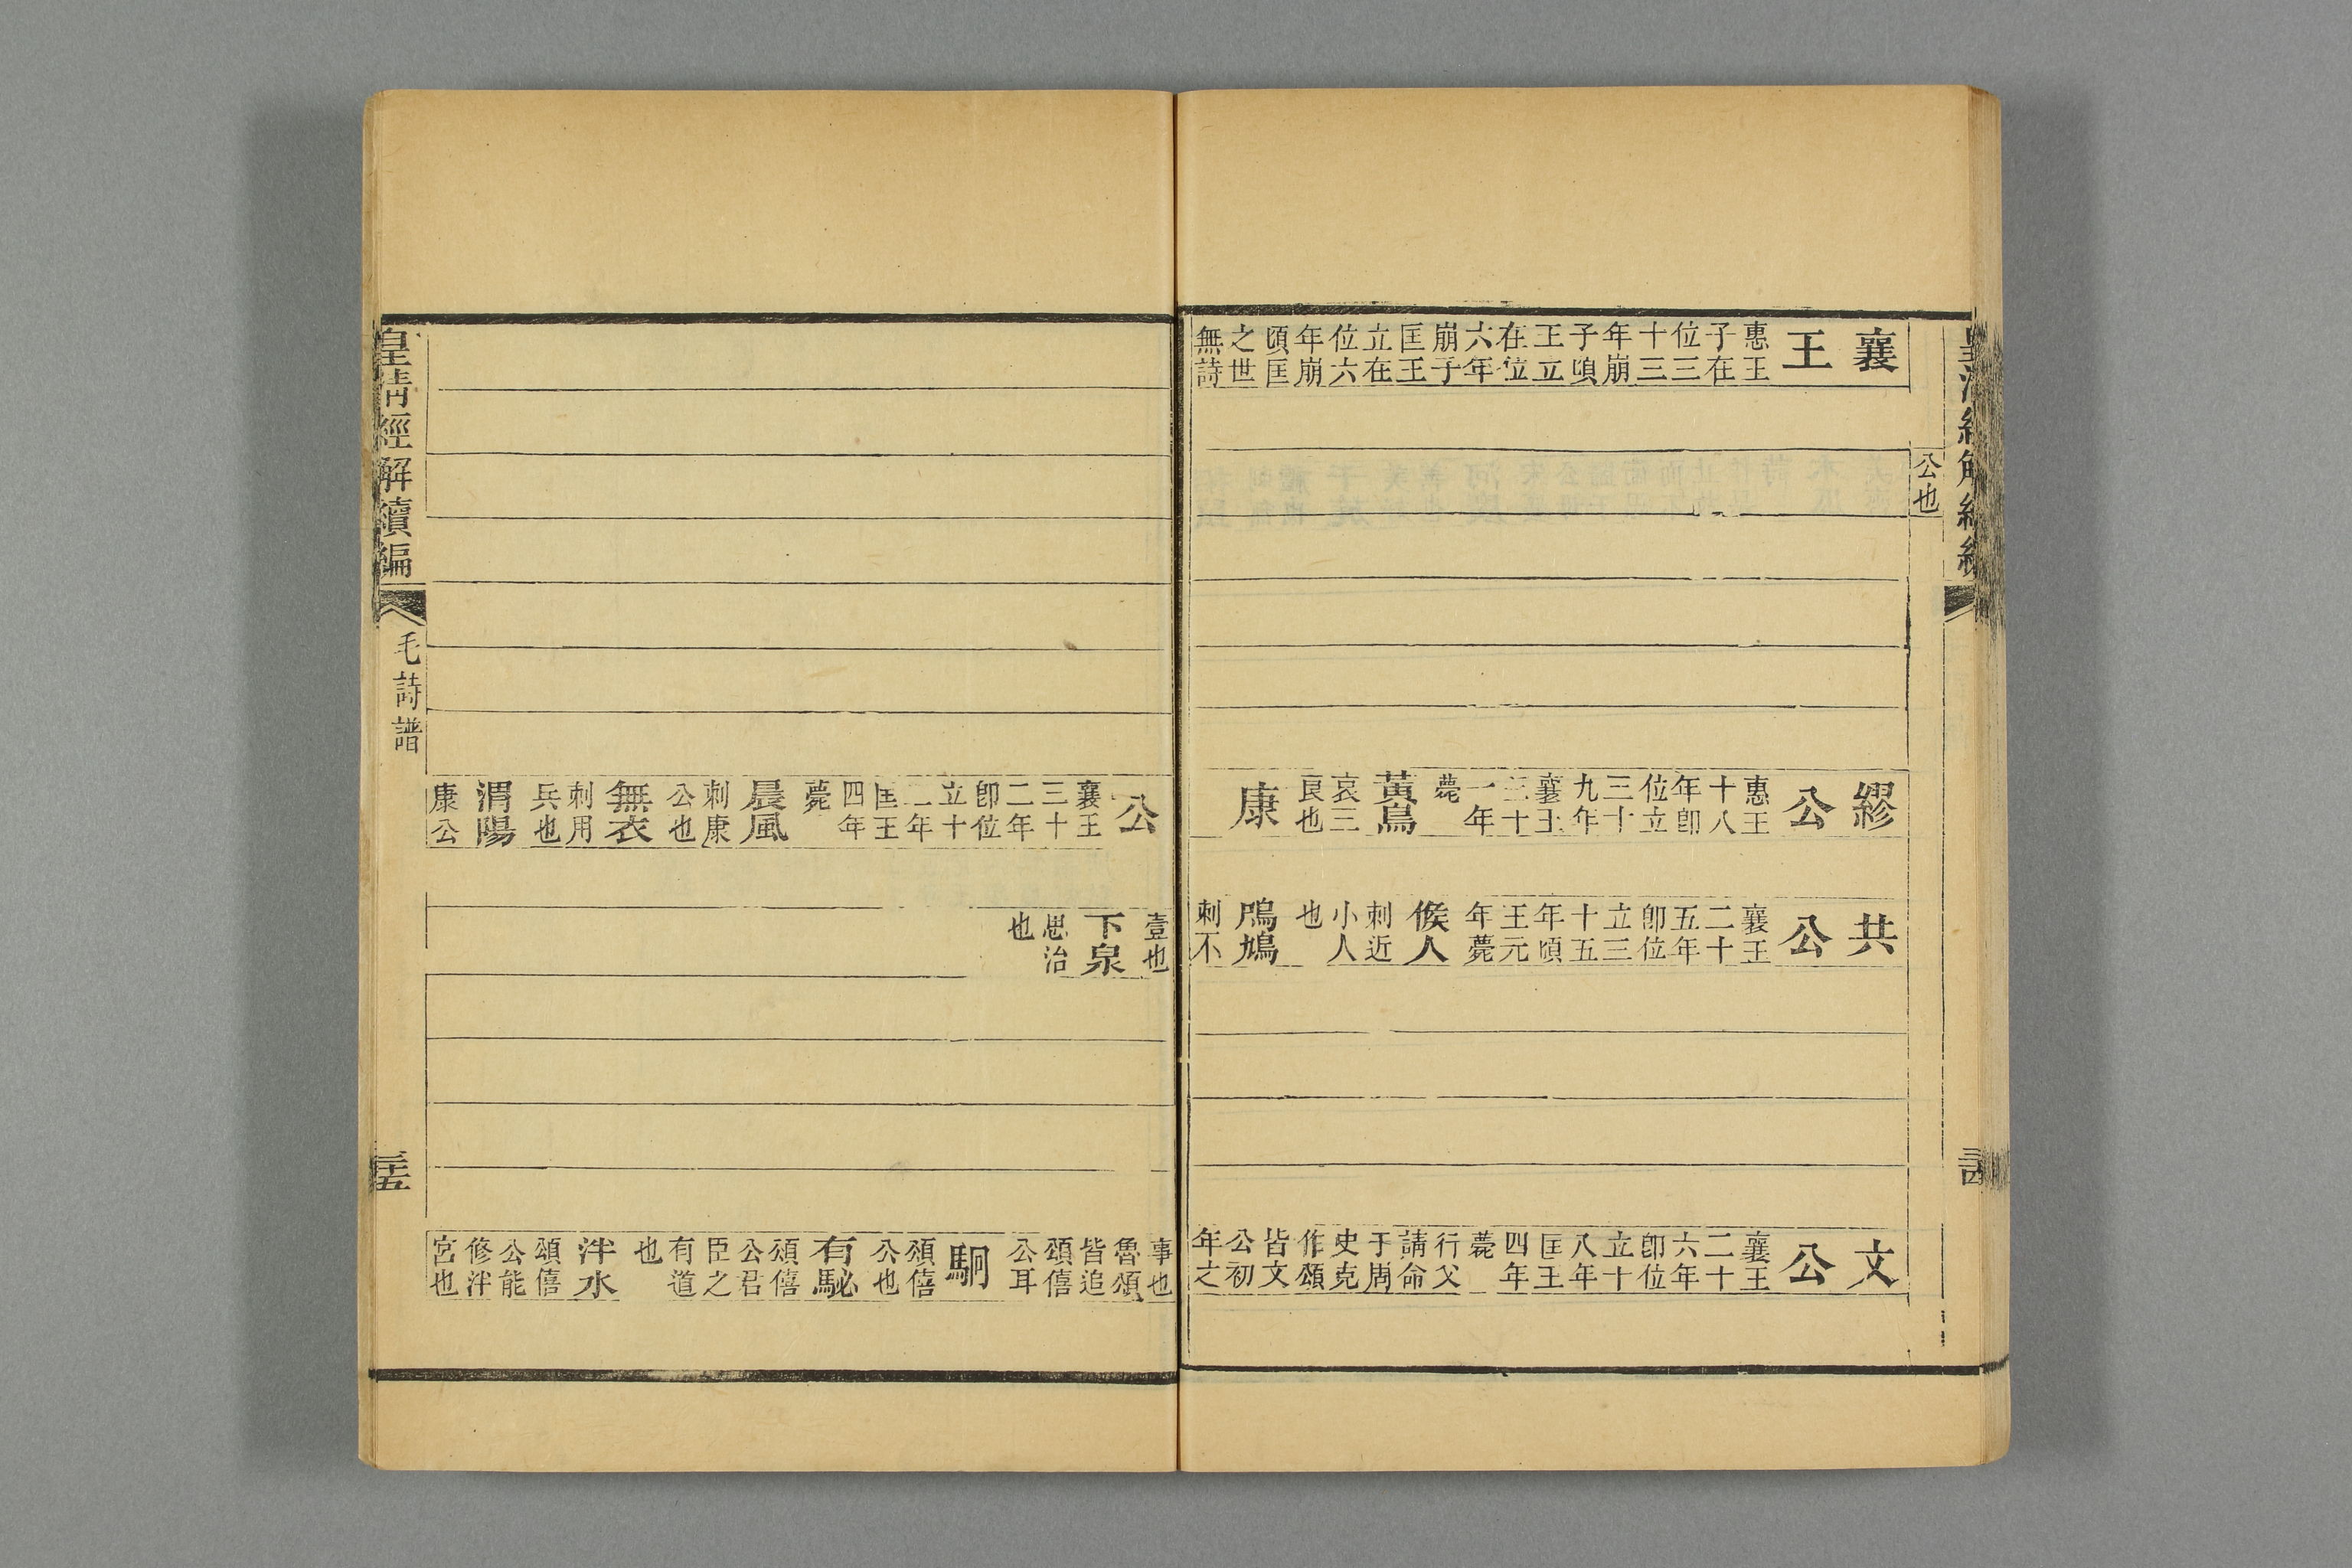 皇清經解續編
公也
襄王 惠王子在位三十三年崩子頃王立在位六年崩子匡王立在位六年崩頃匡之世無詩
繆公 惠王十八年卽位立三十九年襄王三十一年薨 黃鳥 哀三良也 康
共公 襄王二十五年卽位立三十五年頃王元年薨 候人 刺近小人也 鳲鳩 刺不
文公 襄王二十六年卽位立十八年匡王四年薨 行父請命于周史克作頌皆文公初年之
公 襄王三十二年卽位立十二年匡王四年薨 晨風 刺康公也 無衣 刺用兵也 渭陽 康公
壹也 下泉 思治也
事也魯頌皆追頌僖公耳 駉 頌僖公也 有駜 頌僖公君臣之有道也 泮水 頌僖公能修泮宮也
皇清經解續編
毛詩譜
三十五